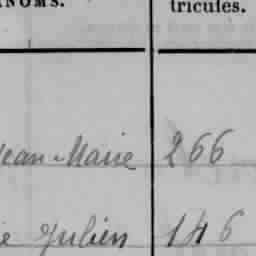 NOMS. tricules.
Jean-Marie 266
ie Julien 146